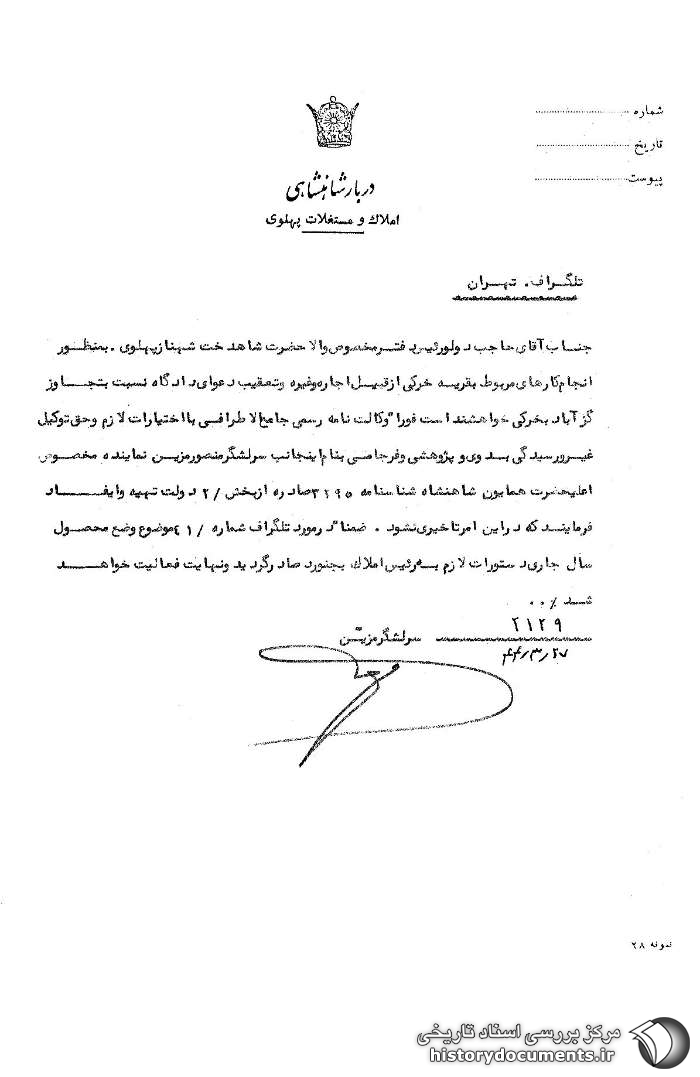 شماره
تاریخ
پیوست
دربار شاهنشاهی
املاک و مستغلات پهلوی
تلگراف. تهران
جناب آقای حاجب دولو رئیس دفتر مخصوص والا حضرت شاهدخت شهناز پهلوی . بمنظور
انجام کارهای مربوط بقریه خرکی از قبیل اجاره وغیره وتعقیب دعوای دادگاه نسبت بتجاوز
گزآباد بخرکی خواهشمند است فورا" وکالت نامه رسمی جامع الاطرافی با اختیارات لازم وحق توکیل
غیر ورسیدگی بدوی و پژوهشی وفرجامی بنام اینجانب سرلشگر منصور مزین نماینده مخصوص
اعلیحضرت همایون شاهنشاه شناسنامه ۳۲۹۵ صادره از بخش /۲ دولت تهیه وایفاد
فرمایند که در این امر تاخیری نشود . ضمنا" در مورد تلگراف شماره /۴۱ موضوع وضع محصول
سال جاری دستورات لازم به رئیس املاک بجنورد صادر گردید ونهایت فعالیت خواهد
شد ٪۰۰
۲۱۲۹
سرلشگر مزیّن
۴۴/۳/۲۷
نمونه ۲۸
مرکز بررسی اسناد تاریخی
historydocuments.ir